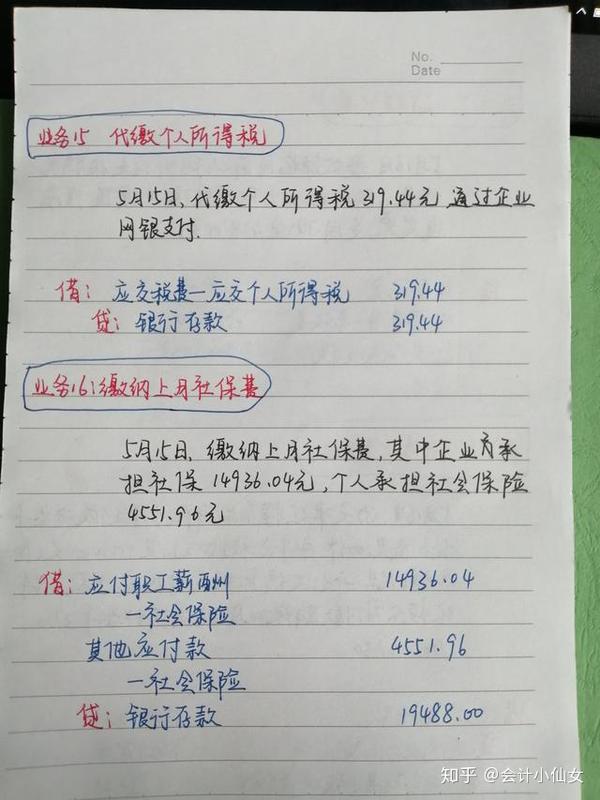 No.
Date
业务15 代缴个人所得税
5月15日,代缴个人所得税319.44元,通过企业
网银支付.
借: 应交税费—应交个人所得税 319.44
贷: 银行存款 319.44
业务16:缴纳上月社保费
5月15日,缴纳上月社保费,其中企业应承
担社保14936.04元,个人承担社会保险
4551.96元
借: 应付职工薪酬 14936.04
—社会保险
其他应付款 4551.96
—社会保险
贷: 银行存款 19488.00
知乎 @会计小仙女